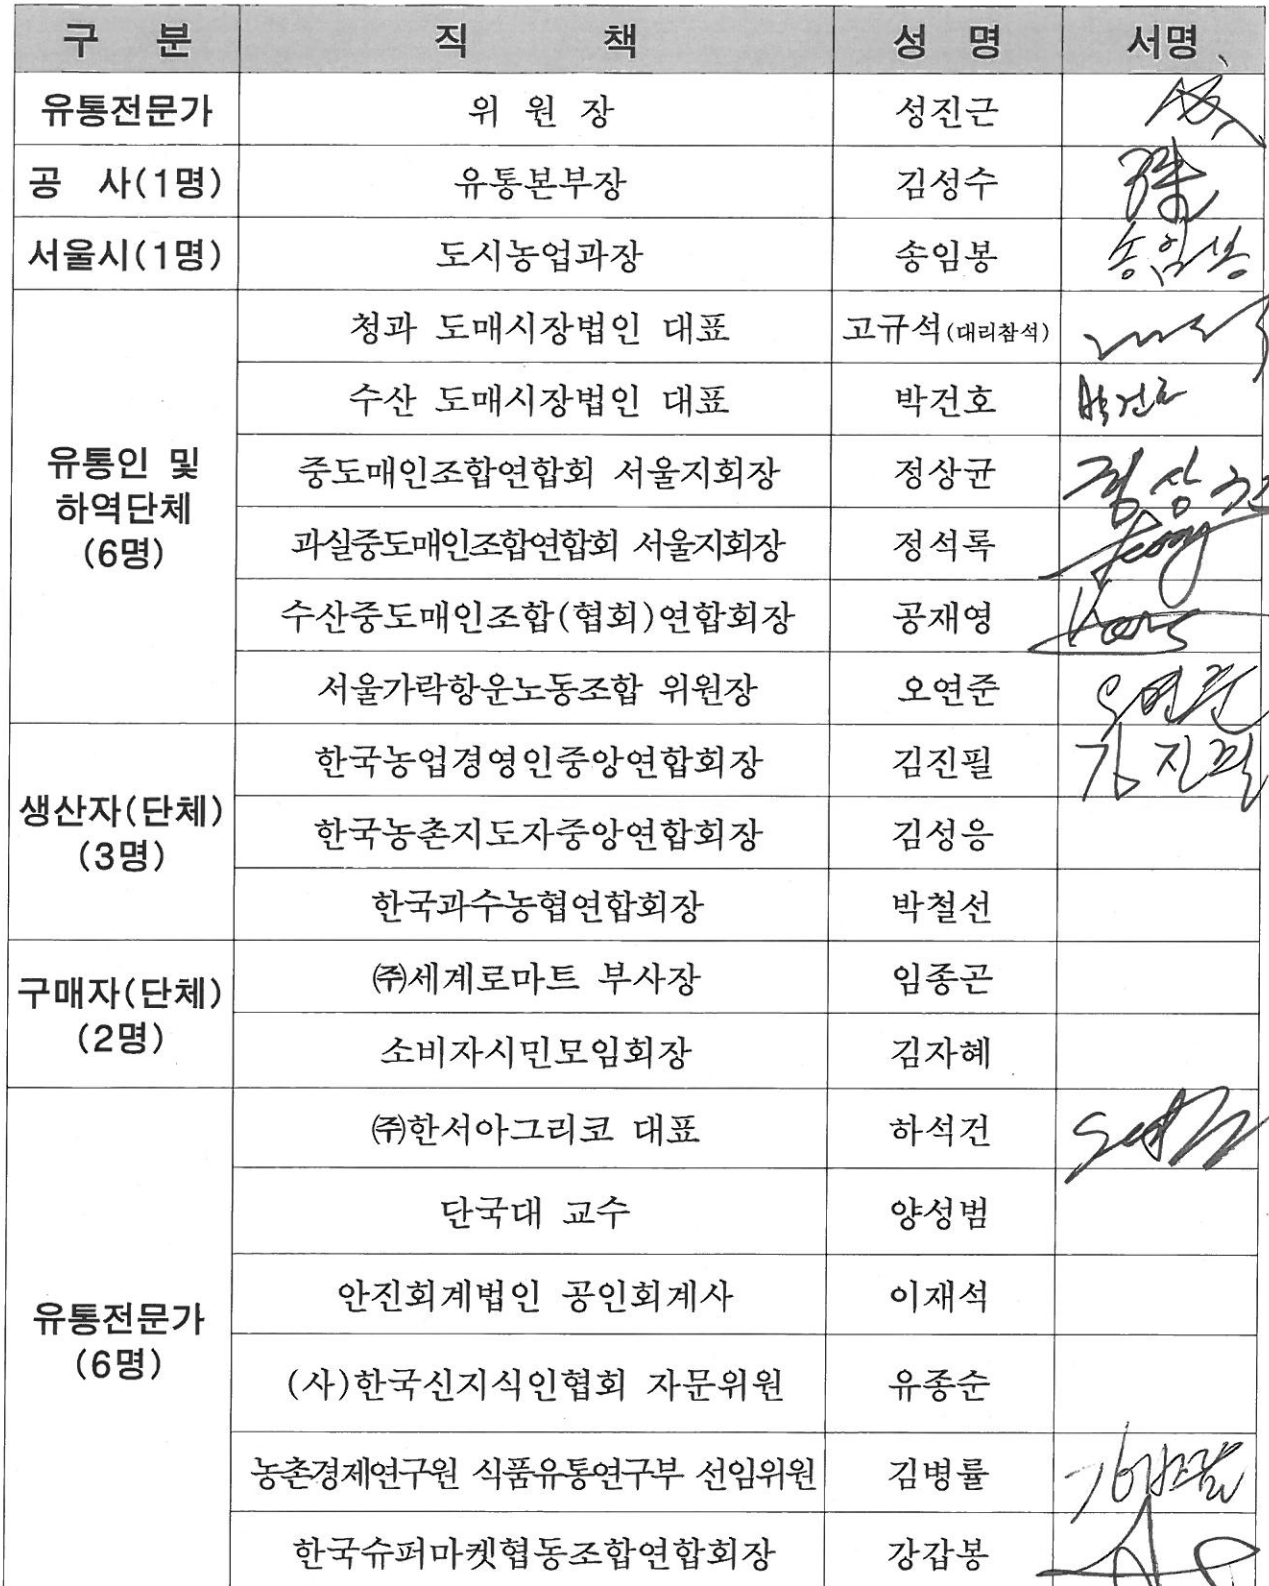 구 분 직 책 성 명 서명
유통전문가 위 원 장 성진근
공 사(1명) 유통본부장 김성수
서울시(1명) 도시농업과장 송임봉 송임봉
유통인 및
하역단체
(6명)
청과 도매시장법인 대표 고규석(대리참석)
수산 도매시장법인 대표 박건호 박건호
중도매인조합연합회 서울지회장 정상균 정상균
과실중도매인조합연합회 서울지회장 정석록 Jeong
수산중도매인조합(협회)연합회장 공재영 Kong
서울가락항운노동조합 위원장 오연준 오연준
생산자(단체)
(3명)
한국농업경영인중앙연합회장 김진필 김진필
한국농촌지도자중앙연합회장 김성응
한국과수농협연합회장 박철선
구매자(단체)
(2명)
㈜세계로마트 부사장 임종곤
소비자시민모임회장 김자혜
유통전문가
(6명)
㈜한서아그리코 대표 하석건
단국대 교수 양성범
안진회계법인 공인회계사 이재석
(사)한국신지식인협회 자문위원 유종순
농촌경제연구원 식품유통연구부 선임위원 김병률
한국슈퍼마켓협동조합연합회장 강갑봉